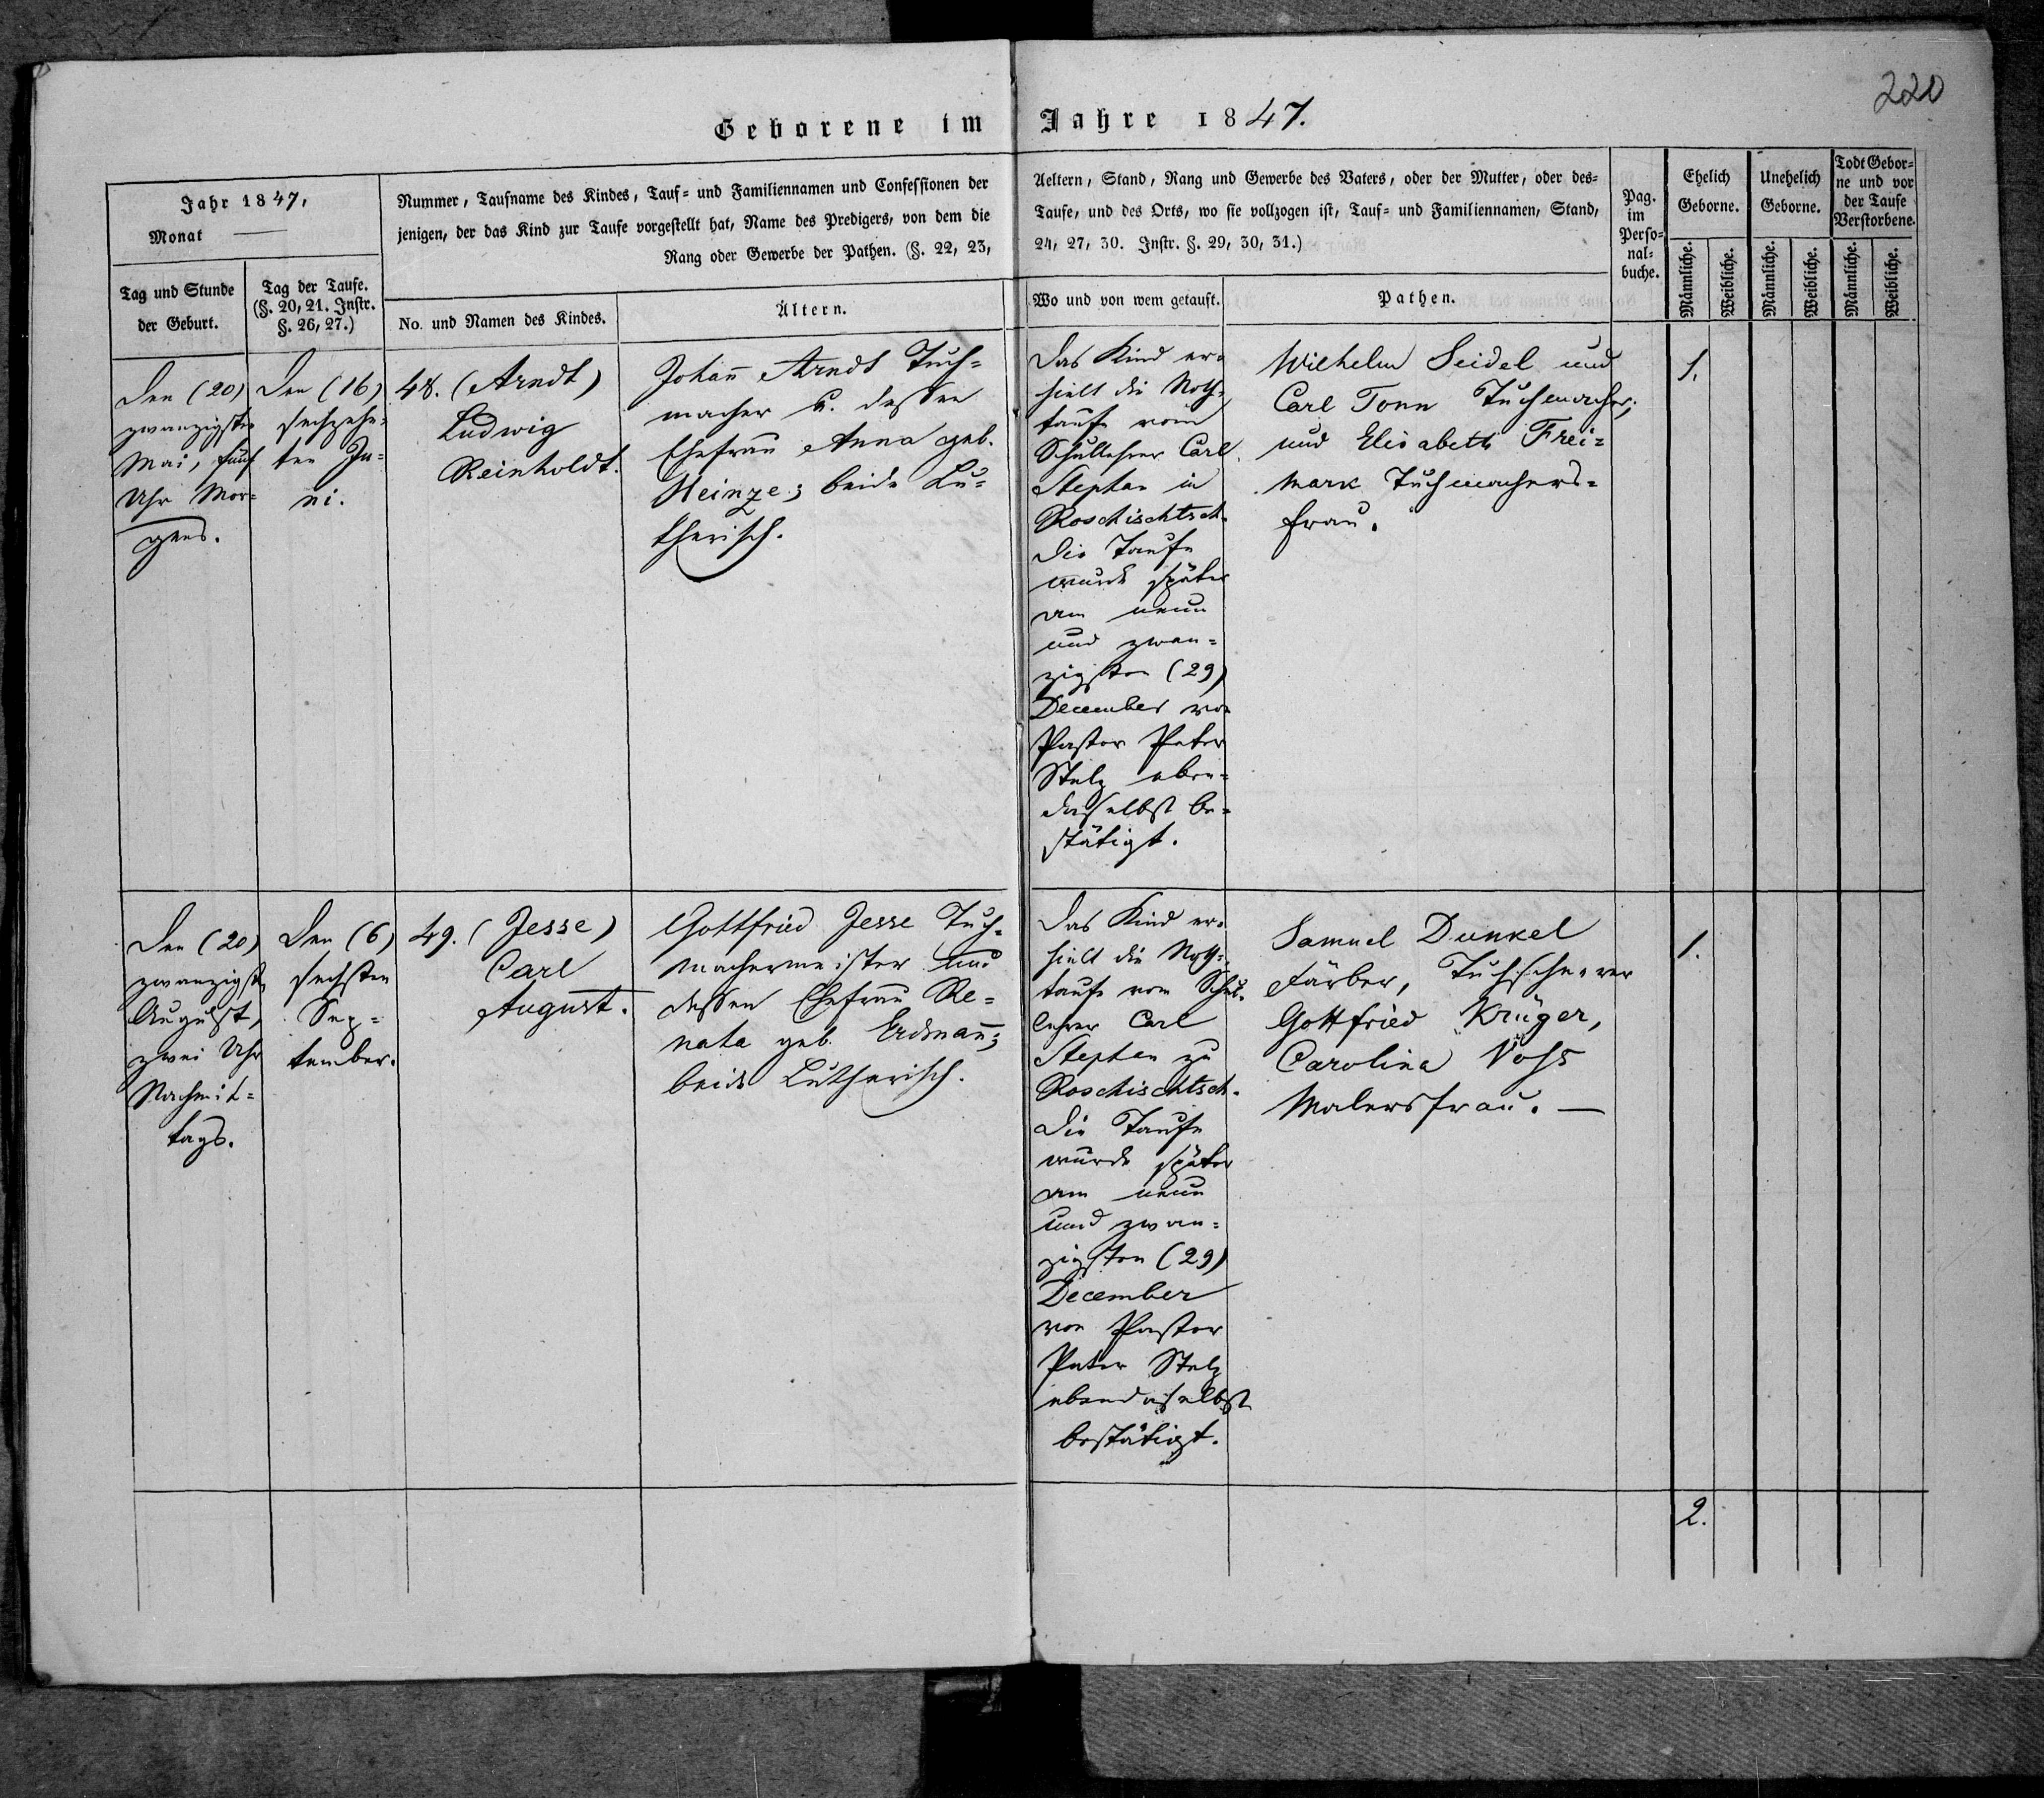 220
Geborene im Jahre 1847.
Jahr 1847,
Monat
Tag und Stunde
der Geburt.
Tag der Taufe.
(§. 20, 21. Instr.
§. 26, 27.)
Nummer, Taufname des Kindes, Tauf= und Familiennamen und Confessionen der
jenigen, der das Kind zur Taufe vorgestellt hat, Name des Predigers, von dem die
Rang oder Gewerbe der Pathen. (§. 22, 23,
No. und Namen des Kindes.
Ältern.
Aeltern, Stand, Rang und Gewerbe des Vaters, oder der Mutter, oder des=
Taufe, und des Orts, wo sie vollzogen ist, Tauf= und Familiennamen, Stand,
24, 27, 30. Instr. §. 29, 30, 31.)
Wo und von wem getauft.
Pathen.
Pag.
im
Perso=
nal=
buche.
Ehelich
Geborne.
Unehelich
Geborne.
Todt Gebor=
ne und vor
der Taufe
Verstorbene.
Männliche.
Weibliche.
Männliche.
Weibliche.
Männliche.
Weibliche.
Den (20)
zwanzigsten
Mai, fünf
Uhr Mor=
gens.
Den (16)
sechzehn=
ten Ju=
ni.
48. (Arndt)
Ludwig
Reinholdt.
Johann Arndt Tuch=
macher u. dessen
Ehefrau Anna geb.
Heinze; beide Lu=
therisch.
Das Kind er=
hielt die Noth=
taufe vom
Schullehrer Carl
Stephan in
Roschischtsch.
Die Taufe
wurde später
am neun
und zwan=
zigsten (29)
December von
Pastor Peter
Stelz eben=
daselbst be=
stätigt.
Wilhelm Seidel und
Carl Tonn Tuchmacher;
und Elisabeth Frei=
mark Tuchmachers=
frau.
1.
Den (20)
zwanzigst
August,
zwei Uhr
Nachmit=
tags.
Den (6)
sechsten
Sep=
tember.
49. (Jesse)
Carl
August.
Gottfried Jesse Tuch=
machermeister und
dessen Ehefrau Re=
nata geb. Erdmann;
beide Lutherisch.
Das Kind er=
hielt die Noth=
taufe vom Schul=
lehrer Carl
Stephan zu
Roschischtsch.
Die Taufe
wurde später
am neun
und zwan=
zigsten (29)
December
von Pastor
Peter Stelz
ebendaselbst
bestätigt.
Samuel Dunkel
Färber, Tuchscheerer
Gottfried Krüger,
Carolina Voss
Malersfrau. —
1.
2.